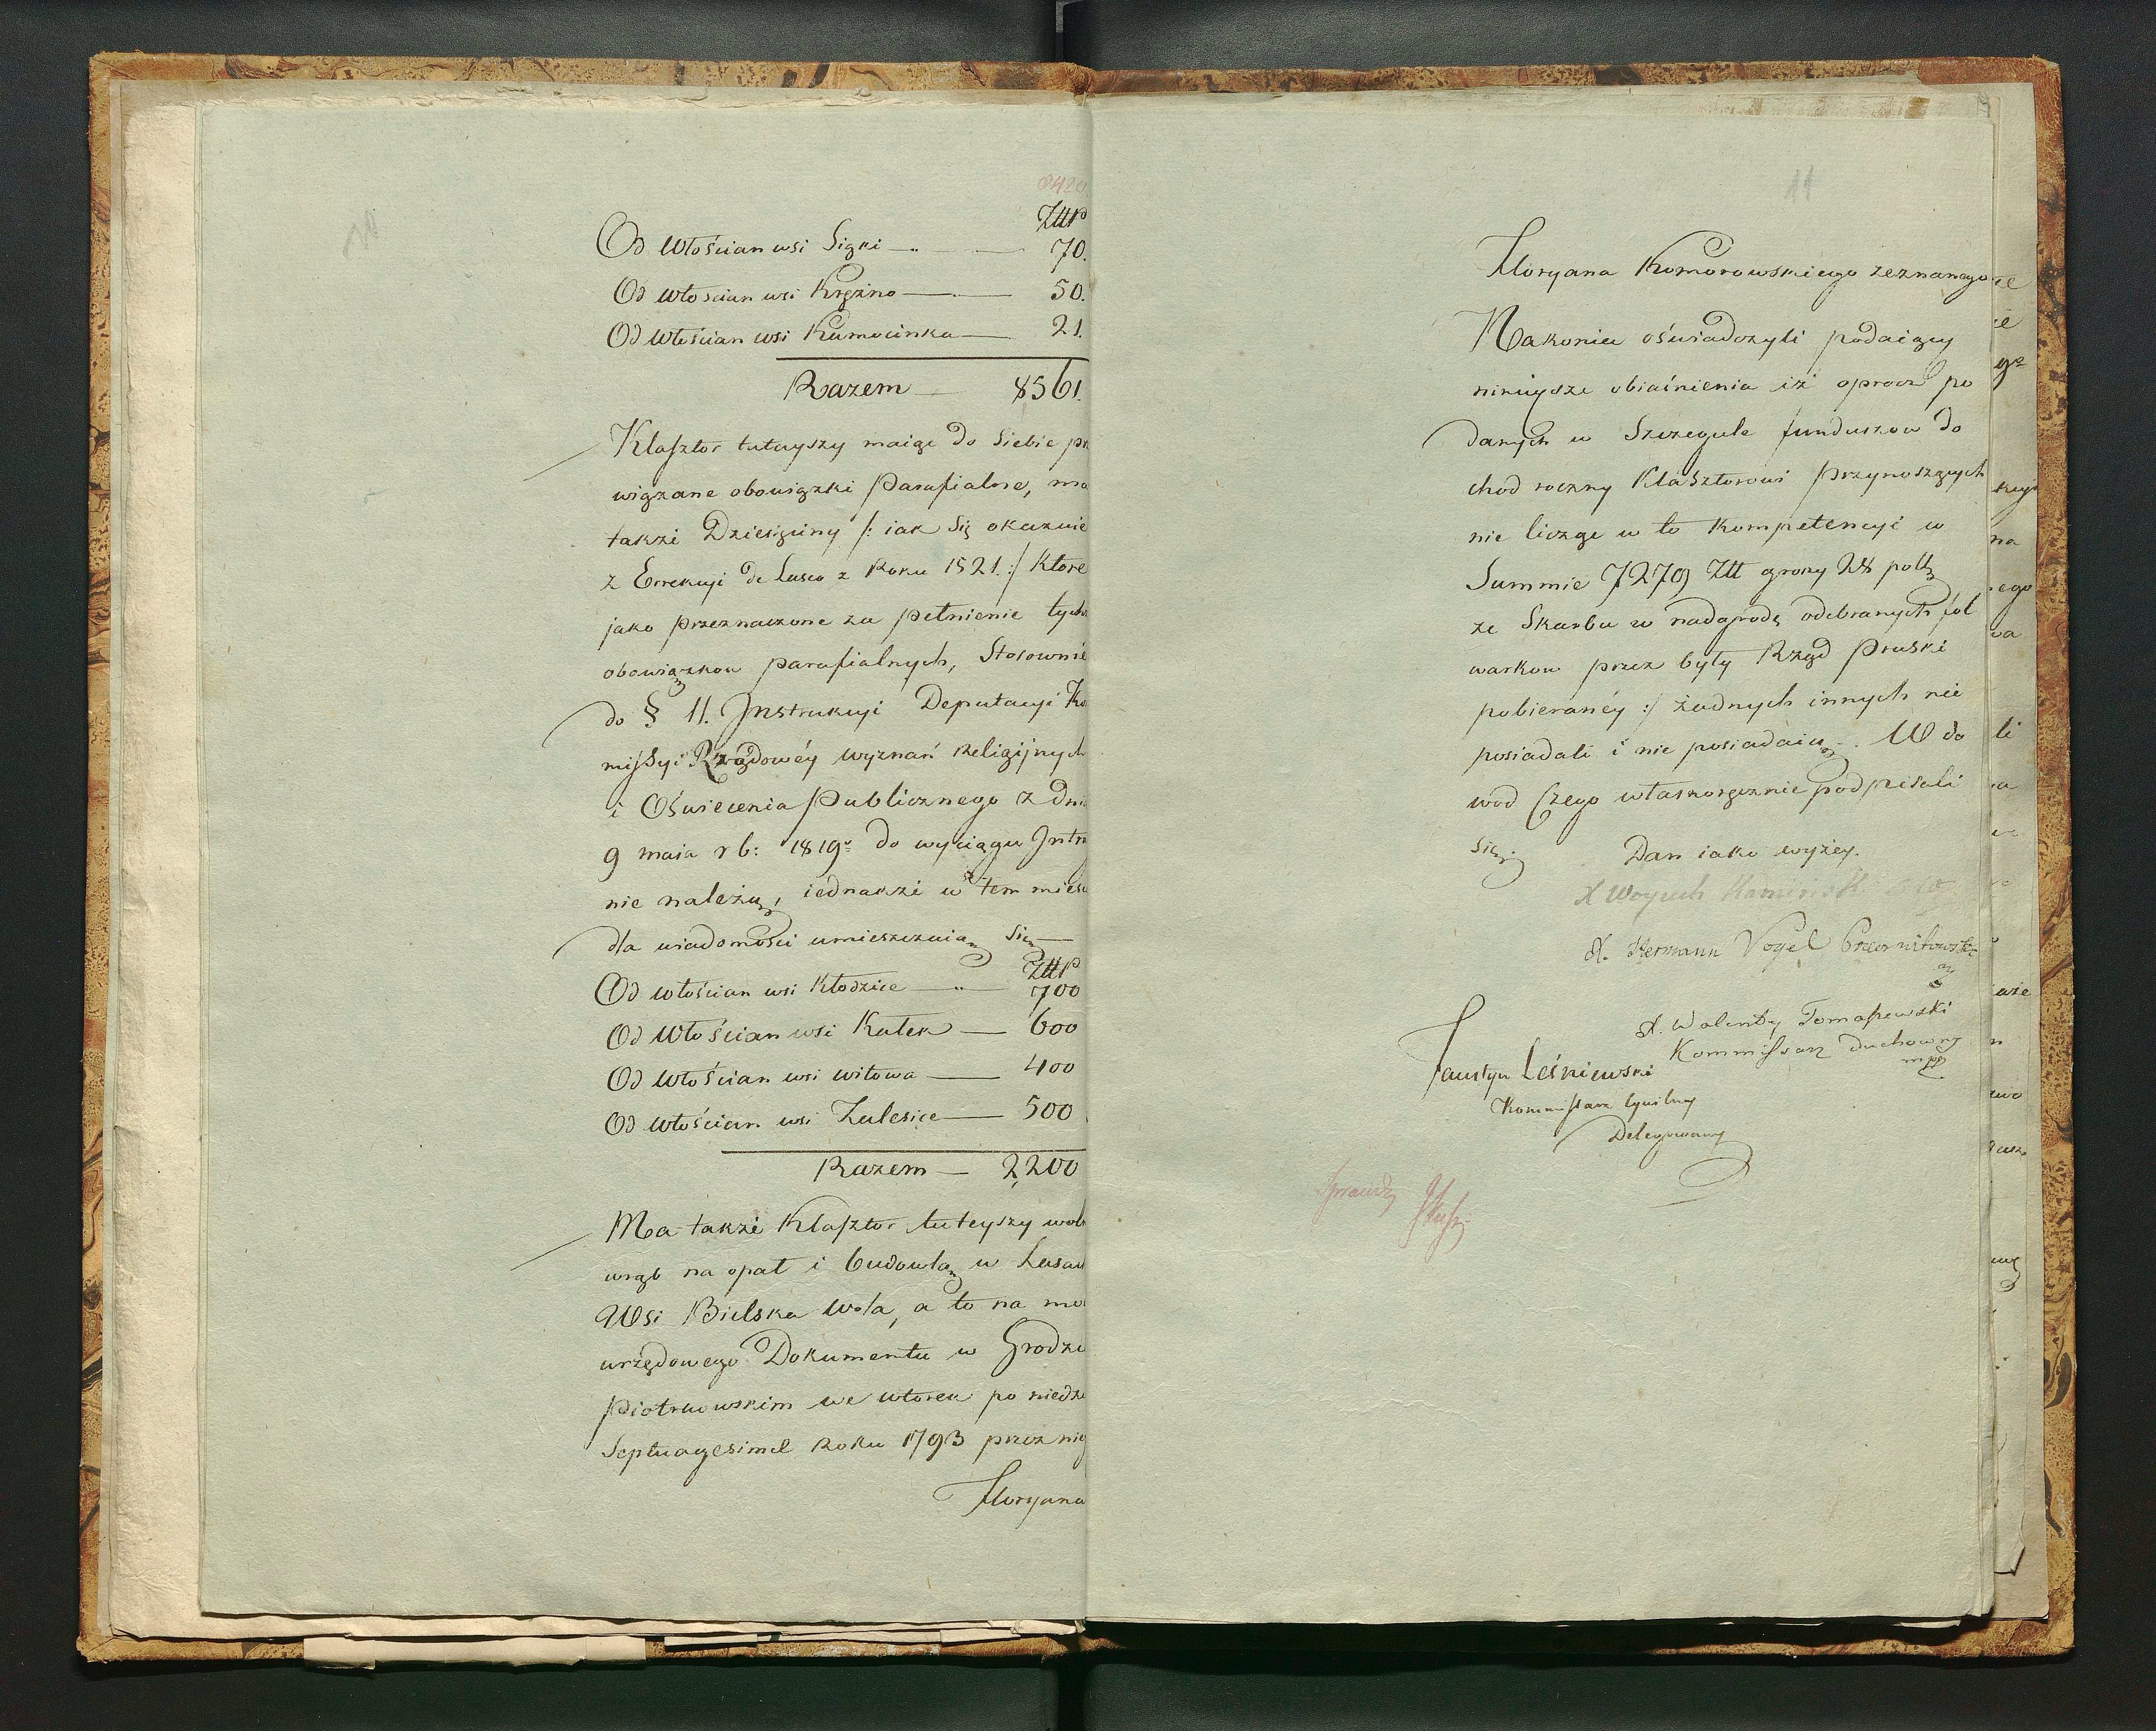 8420
ZłłP
Od Włościan wsi Siąki — 70.
Od włościan wsi Krężno — 50.
Od włościan wsi Kumocinka — 21.
Razem — 8561.
Klasztor tuteyszy maiąc do siebie prz
wiązane obowiązki Parafialne, ma
takze Dziesięciny /: iak się okazuie
z Errekcyi de Lasco z Roku 1521. :/ Ktore
jako przeznaczone za pełnienie tychże
obowiązkow parafialnych, Stosownie
do § 11. Jnstrukcyi Deputacyi Ko
missyi Rządowéy wyznań Religijnych
i Oświecenia Publicznego z Dnia
9 maia r b: 1819º do wyciągu Jntr
nie należą, iednakże w tem mieśc
dla wiadomości umieszczaią się —
ZłłP
Od włościan wsi Kłodzice — 700
Od Włościan wsi Kałek — 600
Od Włościan wsi witowa — 400
Od włościan wsi Zalesice — 500
Razem — 2,200
Ma także Klasztor tuteyszy woln
wrąb na opał i budowlą w Lasach
Wsi Bielska wola, a to na mo
urzędowego Dokumentu w Grodzie
Piotrkowskim we wtorek po niedzi
Septuagesimæ Roku 1793 przez nieg
Floryana
11
Floryana Komorowskiego zeznanego
Nakoniec oświadczyli podaiący
ninieysze obiaśnienia iż oprocz po
danych w Szczegule funduszow do
chod roczny Klasztorowi przynoszących
nie licząc w to Kompetencyi w
Summie 7279 Złł groszy 28 poll
ze Skarbu w nadgrodę odebranych fol
warkow przez były Rząd Pruski
pobieranéy :/ żadnych innych nie
posiadali i nie posiadaią. W do
wod Czego własnoręcznie podpisali
się. Dan iako wyżey.
X Woyciech Kamiński
X. Hermann Vogel
X. Walenty Tomaszewski
Kommissarz Duchowny
mpp
Faustyn Leśniewski
Kommissarz Cywilny
Delegowany
Sprawdz